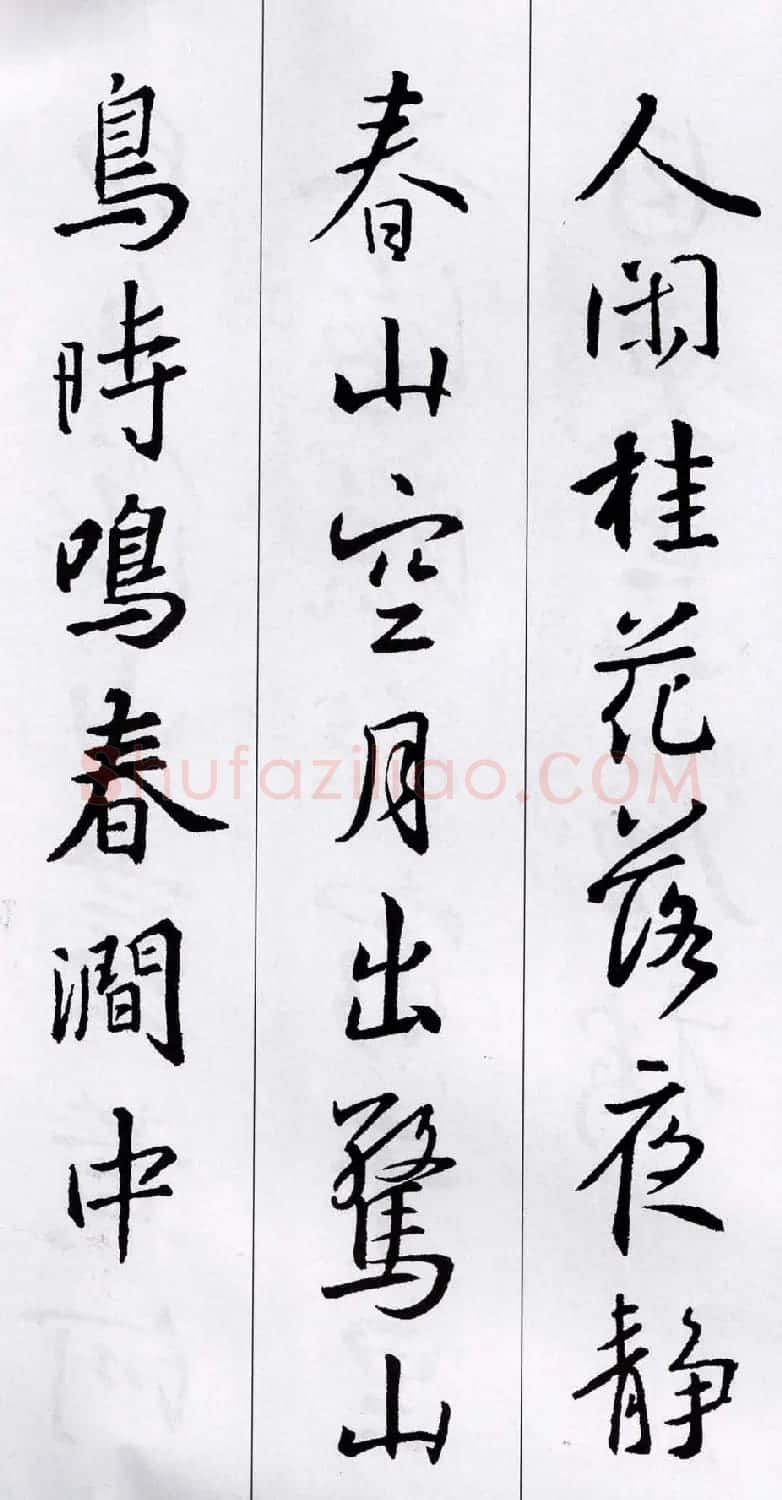 人闲桂花落夜静
春山空月出驚山
鳥時鳴春澗中
Shufaziliao.COM